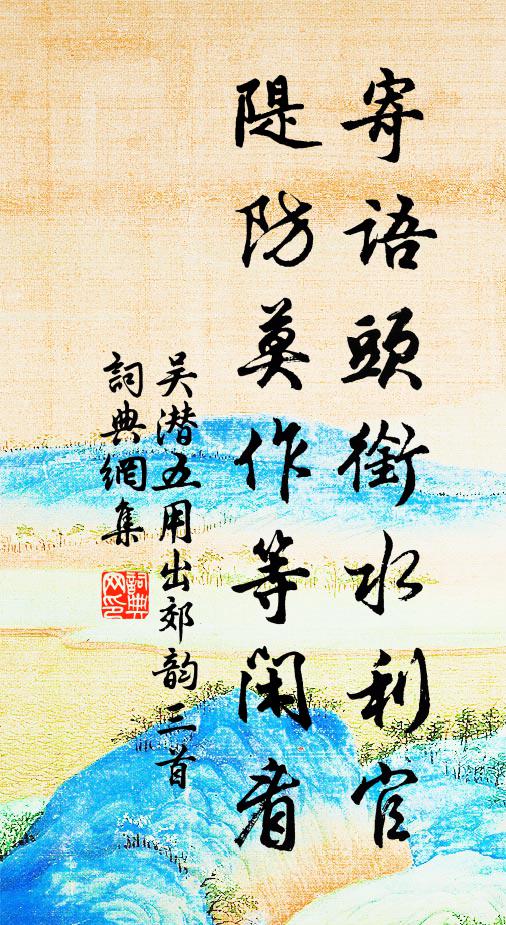 寄語頭銜水利官
隄防莫作等閑看
吴潜五用出郊韵三首
詞典網集
詞典
网印